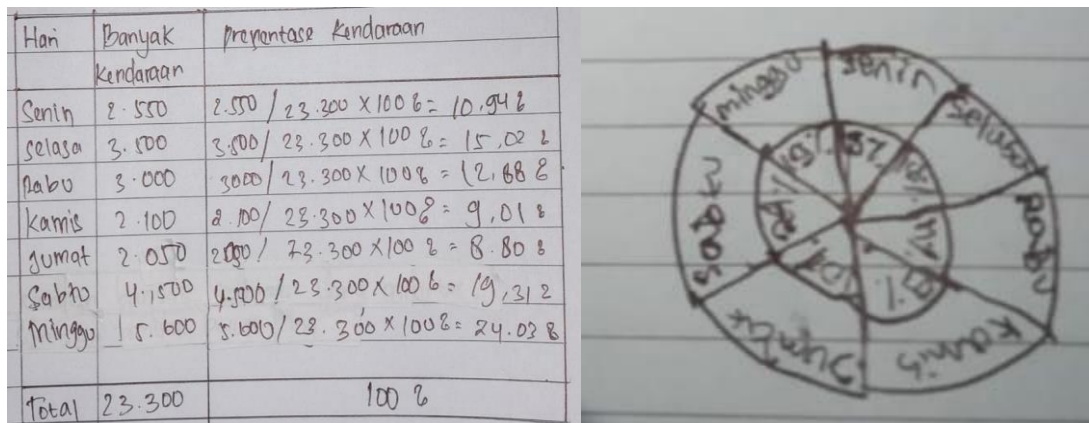 Hari Banyak Kendaraan Presentase Kendaraan
Senin 2.550 2.550 / 23.300 X 100% = 10.94%
Selasa 3.500 3.500 / 23.300 X 100% = 15,02%
Rabu 3.000 3000 / 23.300 X 100% = 12,88%
Kamis 2.100 2.100 / 23.300 X 100% = 9,01%
Jumat 2.050 / 23.300 X 100% = 8.80%
Sabtu 4.500 4.500 / 23.300 X 100% = 19,31%
Minggu 5.600 5.600 / 23.300 X 100% = 24.03%
Total 23.300 100%
minggu
senin
selasa
sabtu
Rabu
Jumat
kamis